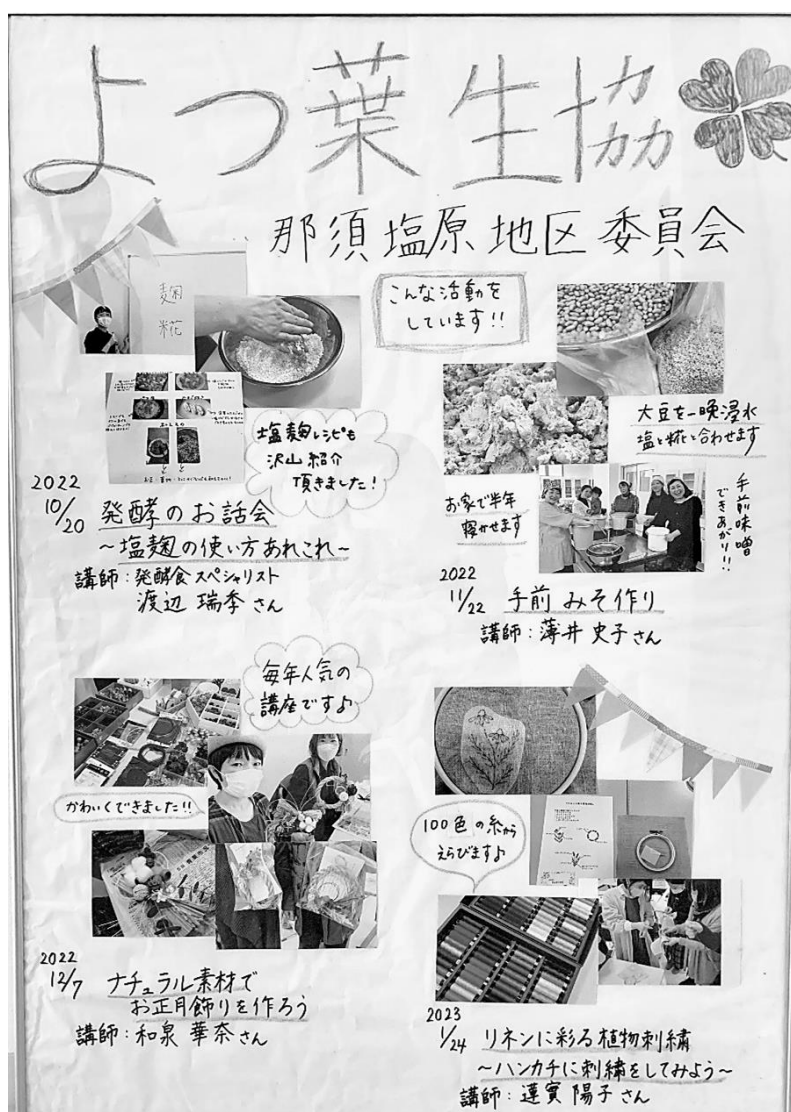 よつ葉生協
那須塩原地区委員会
こんな活動を
しています!!
麹
糀
塩麹レシピも
沢山紹介
頂きました!
2022
10/20 発酵のお話会
～塩麹の使い方あれこれ～
講師:発酵食スペシャリスト
渡辺 瑞季さん
大豆を一晩浸水
塩と糀と合わせます
お家で半年
寝かせます
手前味噌
できあがり!!
2022
11/22 手前みそ作り
講師:薄井史子さん
毎年人気の
講座ですよ♪
かわいくできました!!
2022
12/7 ナチュラル素材で
お正月飾りを作ろう
講師:和泉 華奈さん
100色の糸から
えらびます♪
2023
1/24 リネンに彩る植物刺繍
～ハンカチに刺繍をしてみよう～
講師:蓮實 陽子さん